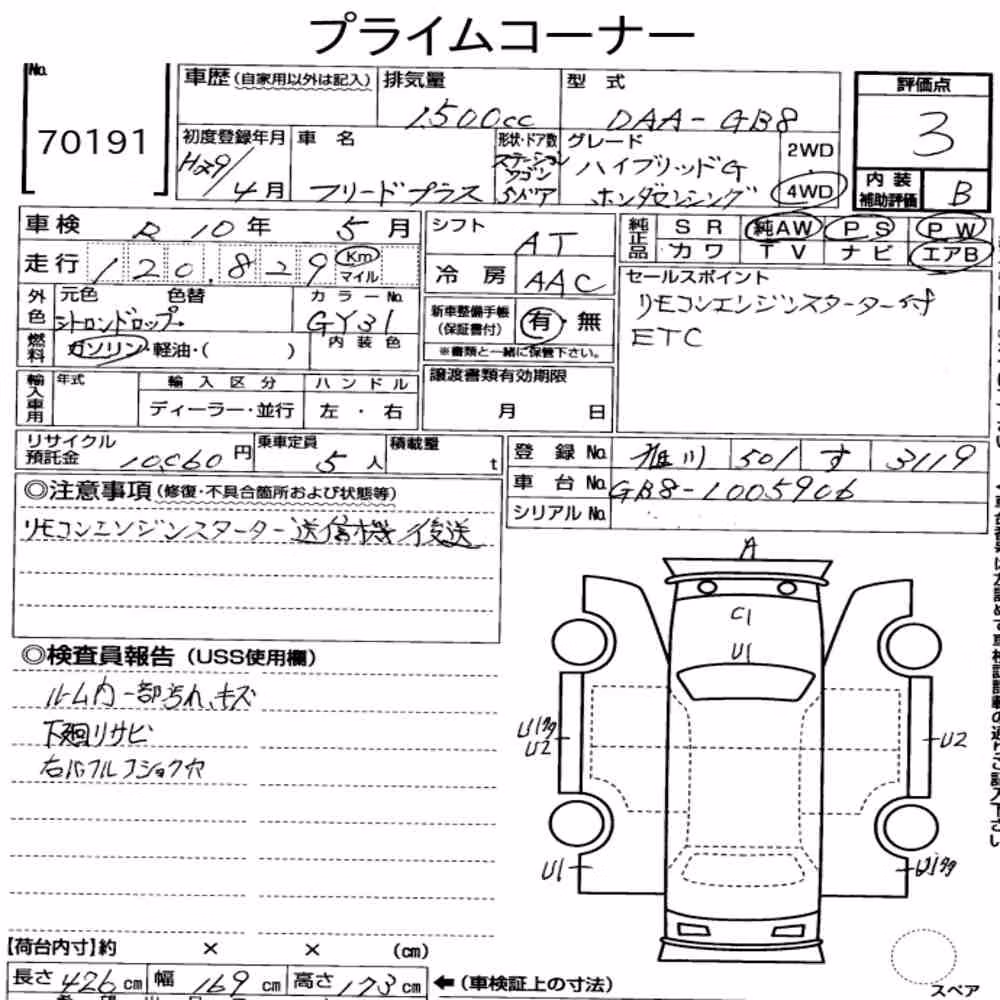 プライムコーナー
No.
70191
車歴 (自家用以外は記入)
排気量
1,500cc
型式
DAA-GB8
評価点
3
初度登録年月
H29/4月
車名
フリードプラス
形状・ドア数
ステーションワゴン
5ドア
グレード
ハイブリッドG
ホンダセンシング
2WD
4WD
内装補助評価
B
車検 R 10年 5月
シフト
AT
純正品
SR 純AW PS PW
カワ TV ナビ エアB
走行 120,829 Km マイル
冷房 AAC
セールスポイント
リモコンエンジンスターター付
ETC
外色
元色 色替
シトロンドロップ
カラーNo.
GY31
新車整備手帳
(保証書付)
有・無
※書類と一緒に保管下さい。
燃料
ガソリン・軽油・( )
内装色
輸入車用
年式
輸入区分
ディーラー・並行
ハンドル
左・右
譲渡書類有効期限
月 日
リサイクル預託金
10,060円
乗車定員
5人
積載量
t
登録No. 旭川 501 す 3119
車台No. GB8-1005906
シリアルNo.
◎注意事項 (修復・不具合箇所および状態等)
リモコンエンジンスターター送信機後送
◎検査員報告 (USS使用欄)
ルーム内一部汚れ、キズ
下廻りサビ
A
C1
U1
U2
U2
U1
【荷台内寸】約 × × (cm)
長さ 426 cm 幅 169 cm 高さ 173 cm
←(車検証上の寸法)
スペア